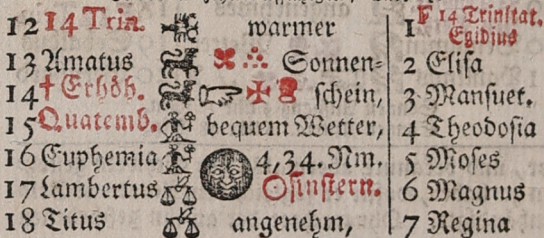 12 14 Trin. warmer 1 F 14 Trinitat.
Egidius
13 Amatus Sonnen= 2 Elisa
14 † Erhöh. schein, 3 Mansuet.
15 Quatemb. bequem Wetter, 4 Theodosia
16 Euphemia 4,34. Nm. 5 Moses
17 Lambertus ☉finstern. 6 Magnus
18 Titus angenehm, 7 Regina